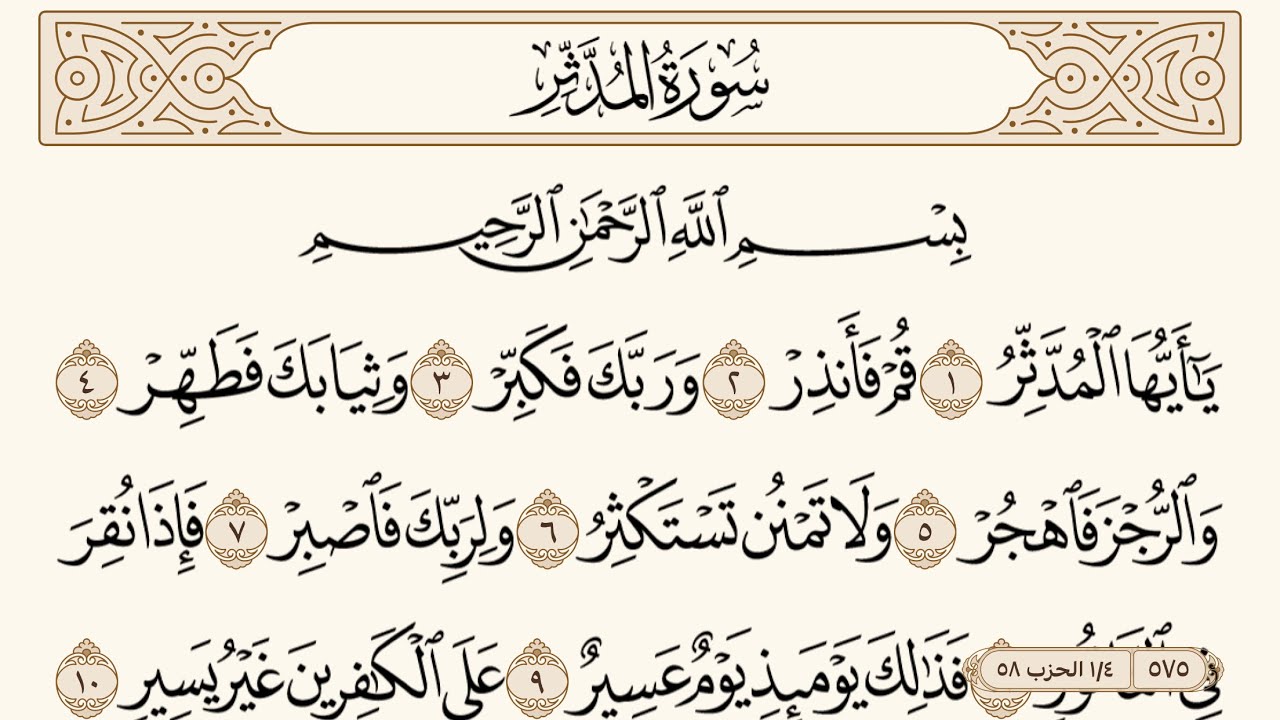 سُورَةُ المُدَّثِّرِ
بِسْمِ ٱللَّهِ ٱلرَّحْمَٰنِ ٱلرَّحِيمِ
يَٰٓأَيُّهَا ٱلْمُدَّثِّرُ ١ قُمْ فَأَنذِرْ ٢ وَرَبَّكَ فَكَبِّرْ ٣ وَثِيَابَكَ فَطَهِّرْ ٤
وَٱلرُّجْزَ فَٱهْجُرْ ٥ وَلَا تَمْنُن تَسْتَكْثِرُ ٦ وَلِرَبِّكَ فَٱصْبِرْ ٧ فَإِذَا نُقِرَ
فِي فَذَٰلِكَ يَوْمَئِذٍ يَوْمٌ عَسِيرٌ ٩ عَلَى ٱلْكَٰفِرِينَ غَيْرُ يَسِيرٍ ١٠
٥٧٥ ١/٤ الحزب ٥٨